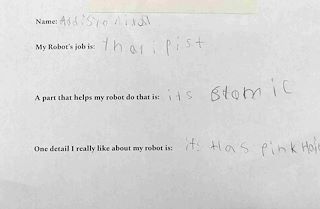 Name: Addison
My Robot's job is: tharipist
A part that helps my robot do that is: its stomic
One detail I really like about my robot is: it has pink